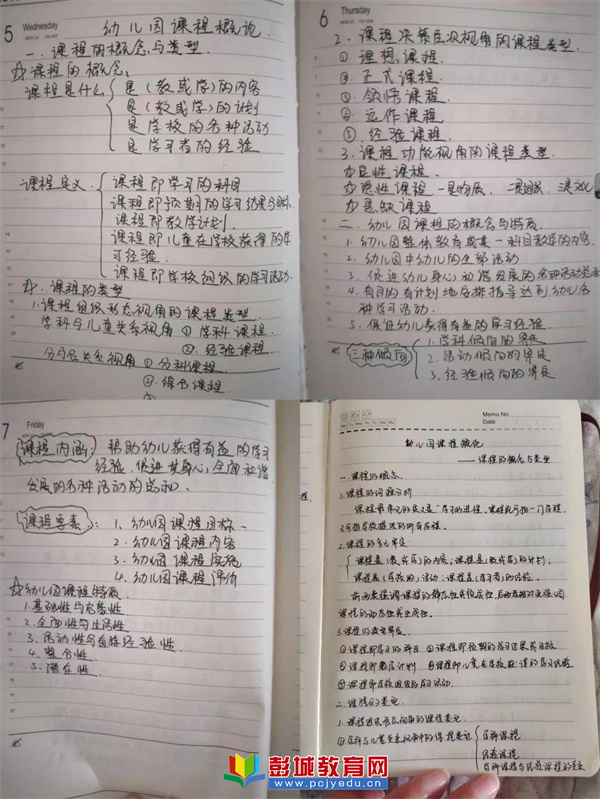 5 Wednesday
幼儿园课程概论
一、课程的概念与类型
课程的概念
课程是什么
是(教或学)的内容
是(教或学)的计划
是学校的各种活动
是学习者的经验
课程定义
课程即学习的科目
课程即预期的学习结果与目标
课程即教学计划
课程即儿童在学校获得的学
习经验
课程即学校组织的学习活动
课程的类型
1.课程组织形态视角的课程类型
学科与儿童关系视角 ①学科课程
②经验课程
分与合关系视角 ①分科课程
②综合课程
6 Thursday
2.课程决策层次视角的课程类型
①理想课程
②正式课程
③领悟课程
④运作课程
⑤经验课程
3.课程功能视角的课程类型
①显性课程
②隐性课程 一是物质
③悬缺课程
二、幼儿园课程的概念与特质
1.幼儿园整体教育或某一科目教学的内容
2.幼儿园中幼儿的全部活动
3.促进幼儿身心和谐发展的各种活动总和
4.有目的有计划地安排指导达到幼儿各
种学习活动
5.保证幼儿获得有益的学习经验
三种倾向
1.学科倾向的界定
2.活动倾向的界定
3.经验倾向的界定
7 Friday
课程内涵: 帮助幼儿获得有益的学习
经验,促进其身心全面和谐
发展的各种活动的总和
课程要素:
1.幼儿园课程目标
2.幼儿园课程内容
3.幼儿园课程实施
4.幼儿园课程评价
幼儿园课程特质
1.基础性与启蒙性
2.全面性与生活性
3.活动性与直接经验性
4.整合性
5.潜在性
Memo No.
Date
幼儿园课程概论
——课程的概念与类型
一、课程的概念
1.课程的词源分析
2.课程的多元界定:
课程是(教或学)的内容;课程是(教或学)的计划;
课程是(学校的)活动;课程是(学习者)的经验。
3.课程的
①课程即学习的科目 ②课程即预期的学习结果或目标
③课程即教学计划 ④课程即儿童在学校获得的学习经验
⑤课程即学校组织的学习活动
二、课程的类型
1.课程组织形态视角的课程类型
①学科与儿童关系视角中的课程类型
学科课程
经验课程
学科课程与经验课程的关系
彭城教育网
www.pcjyedu.cn